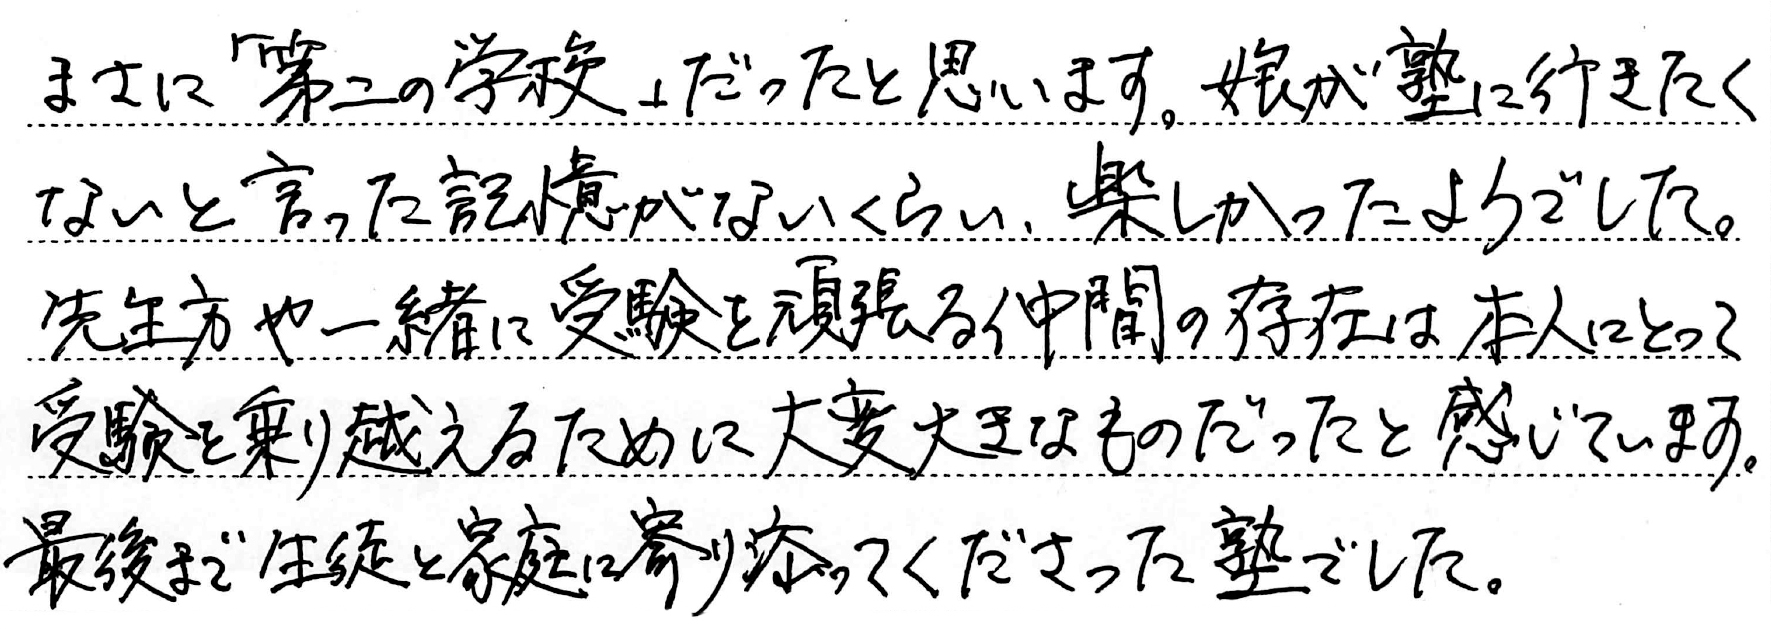 まさに「第二の学校」だったと思います。娘が塾に行きたく
ないと言った記憶がないくらい、楽しかったようでした。
先生方や一緒に受験を頑張る仲間の存在は本人にとって
受験を乗り越えるために大変大きなものだったと感じています。
最後まで生徒と家庭に寄り添ってくださった塾でした。